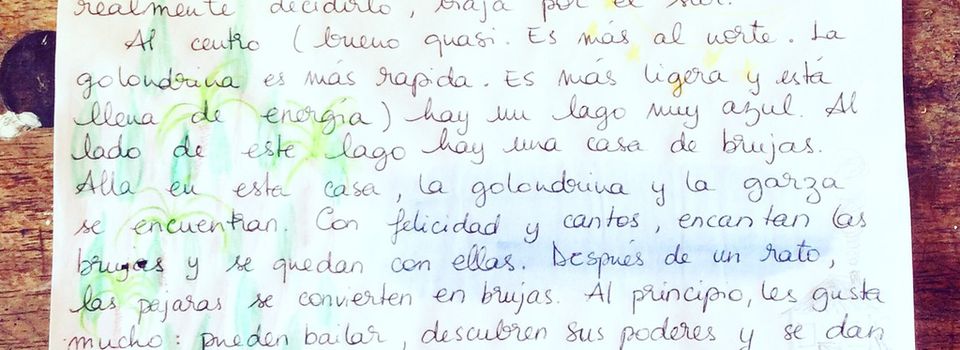 realmente decidirlo, viaja por el sur.
Al centro (bueno quasi. Es más al norte. La
golondrina es más rapida. Es más ligera y está
llena de energía) hay un lago muy azul. Al
lado de este lago hay una casa de brujas.
Alla en esta casa, la golondrina y la garza
se encuentran. Con felicidad y cantos, encantan las
brujas y se quedan con ellas. Después de un rato,
las pajaras se convierten en brujas. Al principio, les gusta
mucho: pueden bailar, descubren sus poderes y se dan